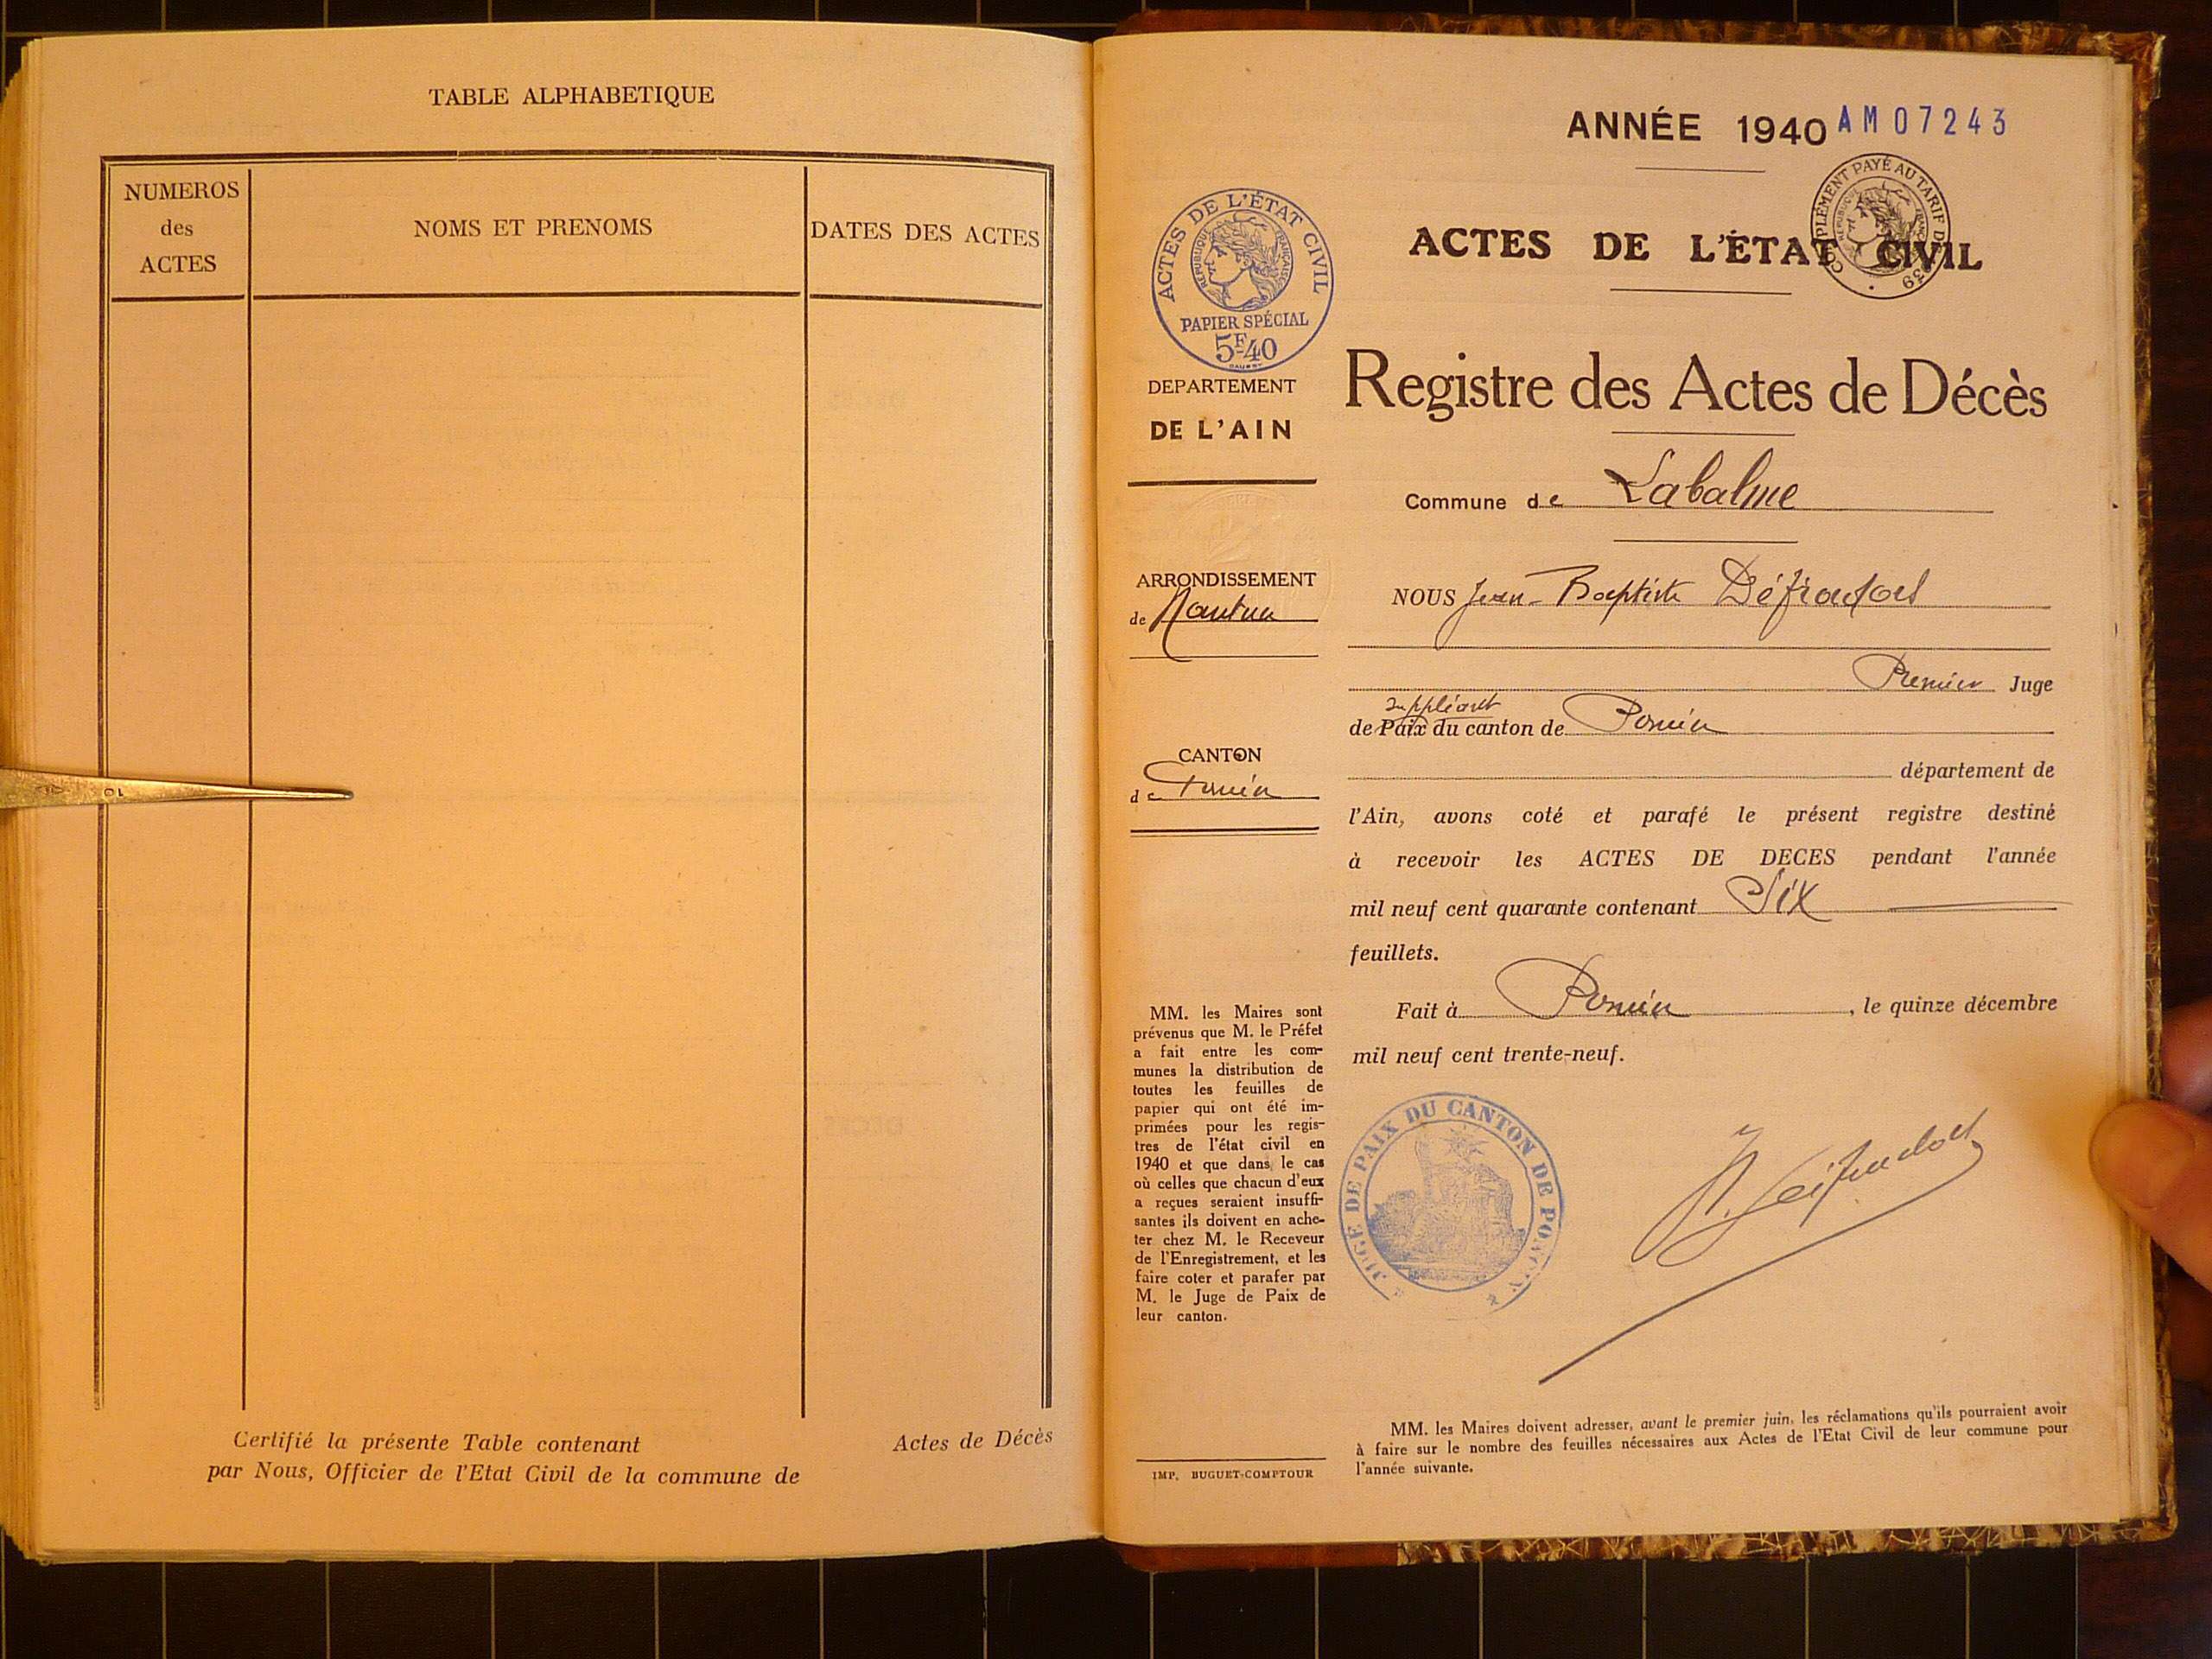 TABLE ALPHABETIQUE
NUMEROS
des
ACTES
NOMS ET PRENOMS
DATES DES ACTES
10
Certifié la présente Table contenant Actes de Décès
par Nous, Officier de l'Etat Civil de la commune de
ANNÉE 1940 AM07243
COMPLÉMENT PAYÉ AU TARIF DE 1939
RÉPUBLIQUE FRANÇAISE
ACTES DE L'ÉTAT CIVIL
ACTES DE L'ÉTAT CIVIL
RÉPUBLIQUE FRANÇAISE
PAPIER SPÉCIAL
5F40
DEPARTEMENT
DE L'AIN
Registre des Actes de Décès
Commune de Labalme
ARRONDISSEMENT
de Nantua
NOUS Jean-Baptiste
Premier Juge
suppléant
de Paix du canton de Poncin
CANTON
de Poncin
département de
l'Ain, avons coté et parafé le présent registre destiné
à recevoir les ACTES DE DECES pendant l'année
mil neuf cent quarante contenant Six
feuillets.
Fait à Poncin, le quinze décembre
mil neuf cent trente-neuf.
MM. les Maires sont
prévenus que M. le Préfet
a fait entre les com-
munes la distribution de
toutes les feuilles de
papier qui ont été im-
primées pour les regis-
tres de l'état civil en
1940 et que dans le cas
où celles que chacun d'eux
a reçues seraient insuffi-
santes ils doivent en ache-
ter chez M. le Receveur
de l'Enregistrement, et les
faire coter et parafer par
M. le Juge de Paix de
leur canton.
JUGE DE PAIX DU CANTON DE PONCIN
MM. les Maires doivent adresser, avant le premier juin, les réclamations qu'ils pourraient avoir
à faire sur le nombre des feuilles nécessaires aux Actes de l'Etat Civil de leur commune pour
l'année suivante.
IMP. BUGUET-COMPTOUR